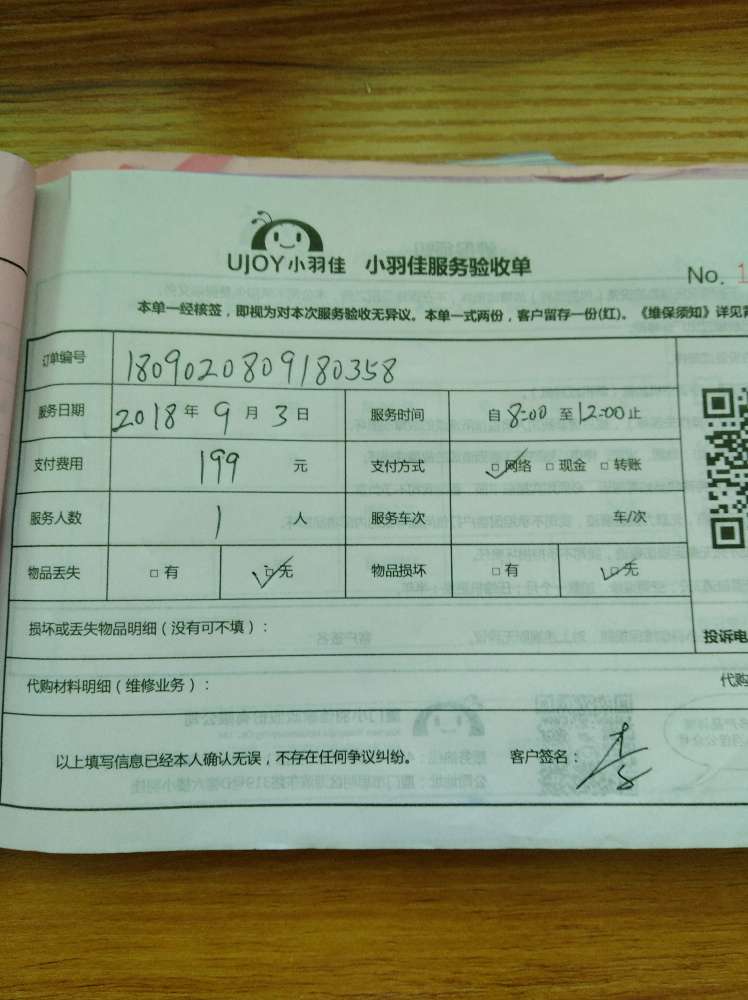 UJOY小羽佳 小羽佳服务验收单
No. 1
本单一经核签，即视为对本次服务验收无异议。本单一式两份，客户留存一份(红)。《维保须知》详见
订单编号 1809020809180358
服务日期 2018年9月3日 服务时间 自8:00至12:00止
支付费用 199元 支付方式 □网络 □现金 □转账
服务人数 1人 服务车次 车/次
物品丢失 □有 □无 物品损坏 □有 □无
损坏或丢失物品明细（没有可不填）：
投诉电
代购材料明细（维修业务）：
代购
以上填写信息已经本人确认无误，不存在任何争议纠纷。 客户签名：